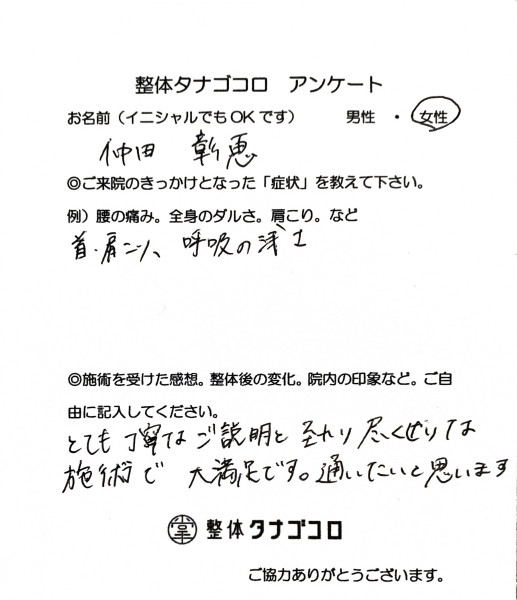 整体タナゴコロ アンケート
お名前（イニシャルでもOKです） 男性 ・ 女性
仲田 彰恵
◎ご来院のきっかけとなった「症状」を教えて下さい。
例）腰の痛み。全身のダルさ。肩こり。など
首・肩こり、呼吸の浅さ
◎施術を受けた感想。整体後の変化。院内の印象など。ご自
由に記入してください。
とても丁寧なご説明と至れり尽くせりな
施術で 大満足です。通いたいと思います
整体タナゴコロ
ご協力ありがとうございます。